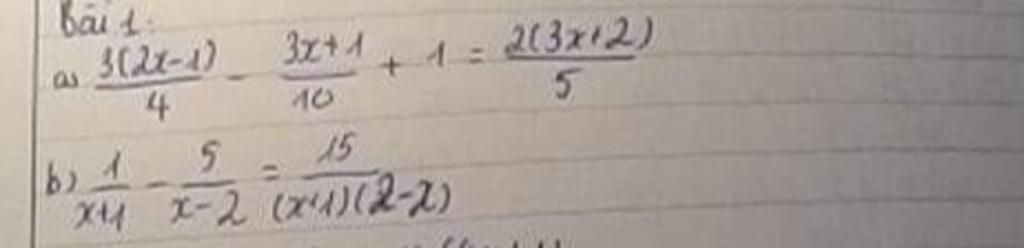 Bài 1:
a) \frac{3(2x-1)}{4} - \frac{3x+1}{10} + 1 = \frac{2(3x+2)}{5}
b) \frac{1}{x+1} - \frac{5}{x-2} = \frac{15}{(x+1)(2-2)}